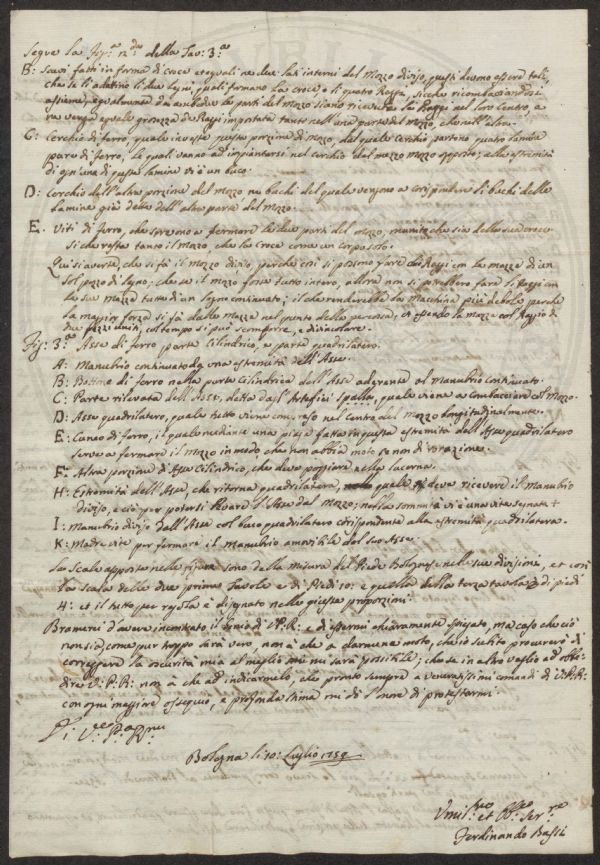 Segue la Fig.ª 2.da della Tav: 3.a
B: Scavi fatti in forma di croce et eguali ne due lati interni del Mozzo diviso, questi devono essere tali,
che se li adatino li due legni, quali formano la croce o li quattro Raggi, sicche ricombaciandosi
assieme, egualmente da ambedue le parti del Mozzo siano ricevuti li Raggi nel loro centro, e
ne venga eguale grossezza de Raggi impostata tanto nell'una parte del Mozzo, che nell'altra.
C: Cerchio di ferro, quale investe questa porzione di Mozzo, dal quale Cerchio partono quatro lamine
pure di ferro, le quali vanno ad impiantarsi nel cerchio del mezzo Mozzo opposto; alla estremità
di ogn'una di queste lamine vi è un buco.
D: Cerchio dell'altra porzione del Mozzo ne buchi del quale vengono a corispondere li buchi delle
lamine già dette dell'altra parte del Mozzo.
E. Viti di ferro, che servono a fermare le due parti del Mozzo, munite che sia della sua croce
si che resta tanto il Mozzo, che la croce come un corpo solo.
Qui si averte, che si fà il Mozzo diviso, perche così si possono fare due Raggi con le mazze di un
sol pezzo di legno; che se il mozzo fosse tutto intero, allora non si potrebbero fare li Raggi con
le sue mazze tutte di un legno continuato; il che renderebbe la Machina più debole perche
la maggior forza si fà dalle mazze nel punto della percossa, et essendo la mazza col Raggio di
due pezzi uniti, col tempo si può scomporre, e divincolare.
Fig: 3.a Asse di ferro parte Cilindrico, e parte quadrilatero.
A: Manubrio continuato da una estremità dell'Asse.
B: Bottone di ferro nella parte Cilindrica dell'Asse aderente al manubrio continuato.
C: Parte rilevata dell'Asse, detta dagl'Artefici Spalla, quale viene a combaciare col Mozzo.
D: Asse quadrilatero, quale tutto viene compreso nel centro del Mozzo longitudinalmente.
E: Cuneo di ferro, il quale mediante una piega fatta in questa estremità dell'Asse quadrilatero
serve a fermare il Mozzo in modo che non abbia moto se non di rotazione.
F: Altra porzione di Asse Cilindrico, che deve poggiare nella lucerna.
H: Estremità dell'Asse, che ritorna quadrilatera, quale deve ricevere il Manubrio
diviso, e ciò per potersi levare l'Asse dal Mozzo; nella sommità vi è una vite segnata +
I: Manubrio diviso dall'Asse col buco quadrilatero corispondente alla estremità quadrilatera.
K: Madre vite per fermare il Manubrio amovibile del suo Asse.
La Scale apposte nelle figure sono della misura del Piede Bolognese nelle sue divisioni, et così
la scala delle due prime Tavole è di Piedi 10: e quella della terza tavola è di piedi
4: et il tutto per regola è disegnato nelle giuste proporzioni.
Bramerei d'avere incontrato il Genio di V: P: R: e di essermi chiaramente spiegato, ma caso che ciò
non sia, come pur troppo sarà vero, non à che a darmene moto, che io subito procurerò di
correggere la oscurità mia al meglio che mi sarà possibile; che se in altro vaglio ad obbe
dire V: P: R: non à che ad indicarmelo, che pronto sempre a veneratissimi comandi di V: P: R:
con ogni maggiore ossequio, e profonda stima mi dò l'onore di protestarmi.
Di V: P: R:
Bologna li 10: Luglio 1759
Umil.mo et Obb.mo Ser.re
Ferdinando Bassi